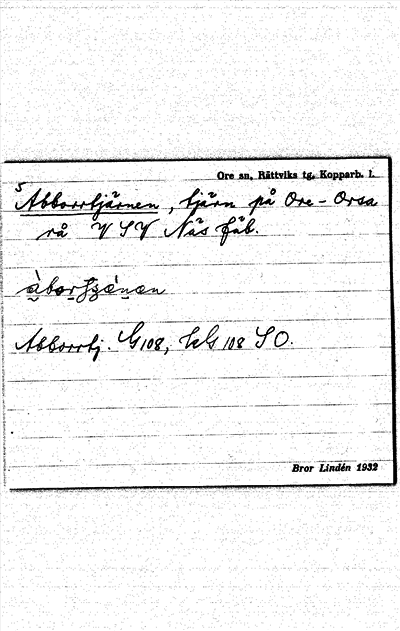 Ore sn, Rättviks tg, Kopparb. l.
5
Abborrtjärnen, tjärn på Ore-Orsa
rå V SV Näs fäb.
Abborrtj. G108, SO.
Bror Lindén 1932